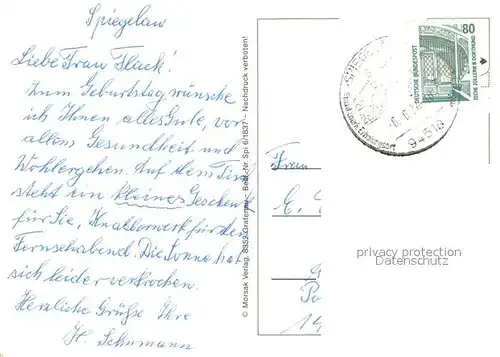 Spiegelau
Liebe Frau Flack!
Zum Geburtstag wünsche
ich Ihnen alles Gute, vor
allem Gesundheit und
Wohlergehen. Auf dem Tisch
steht ein kleines Geschenk
für Sie, Knallerwerk für den
Fernsehabend. Die Sonne hat
sich leider verkrochen.
Herzliche Grüße Ihre
H. Schumann
© Morsak Verlag, 8352 Grafenau Best.-Nr. Spi 6/1837 – Nachdruck verboten!
80
DEUTSCHE BUNDESPOST
ZECHE ZOLLERN II DORTMUND
94518
Frau
E.
14
privacy protection
Datenschutz